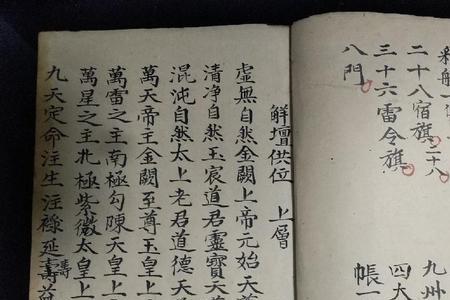 二十八宿旗二十八
三十六雷令旗
八門
九州
四大
帳一
鮮壇供位 上層
虛無自然金闕上帝元始天
清净自然玉宸道君靈寶天
混沌自然太上老君道德天
萬天帝主金闕至尊玉皇上
萬雷之主南極勾陳天皇上
萬星之主北極紫微太皇上
九天定命注生注祿延壽益
壽